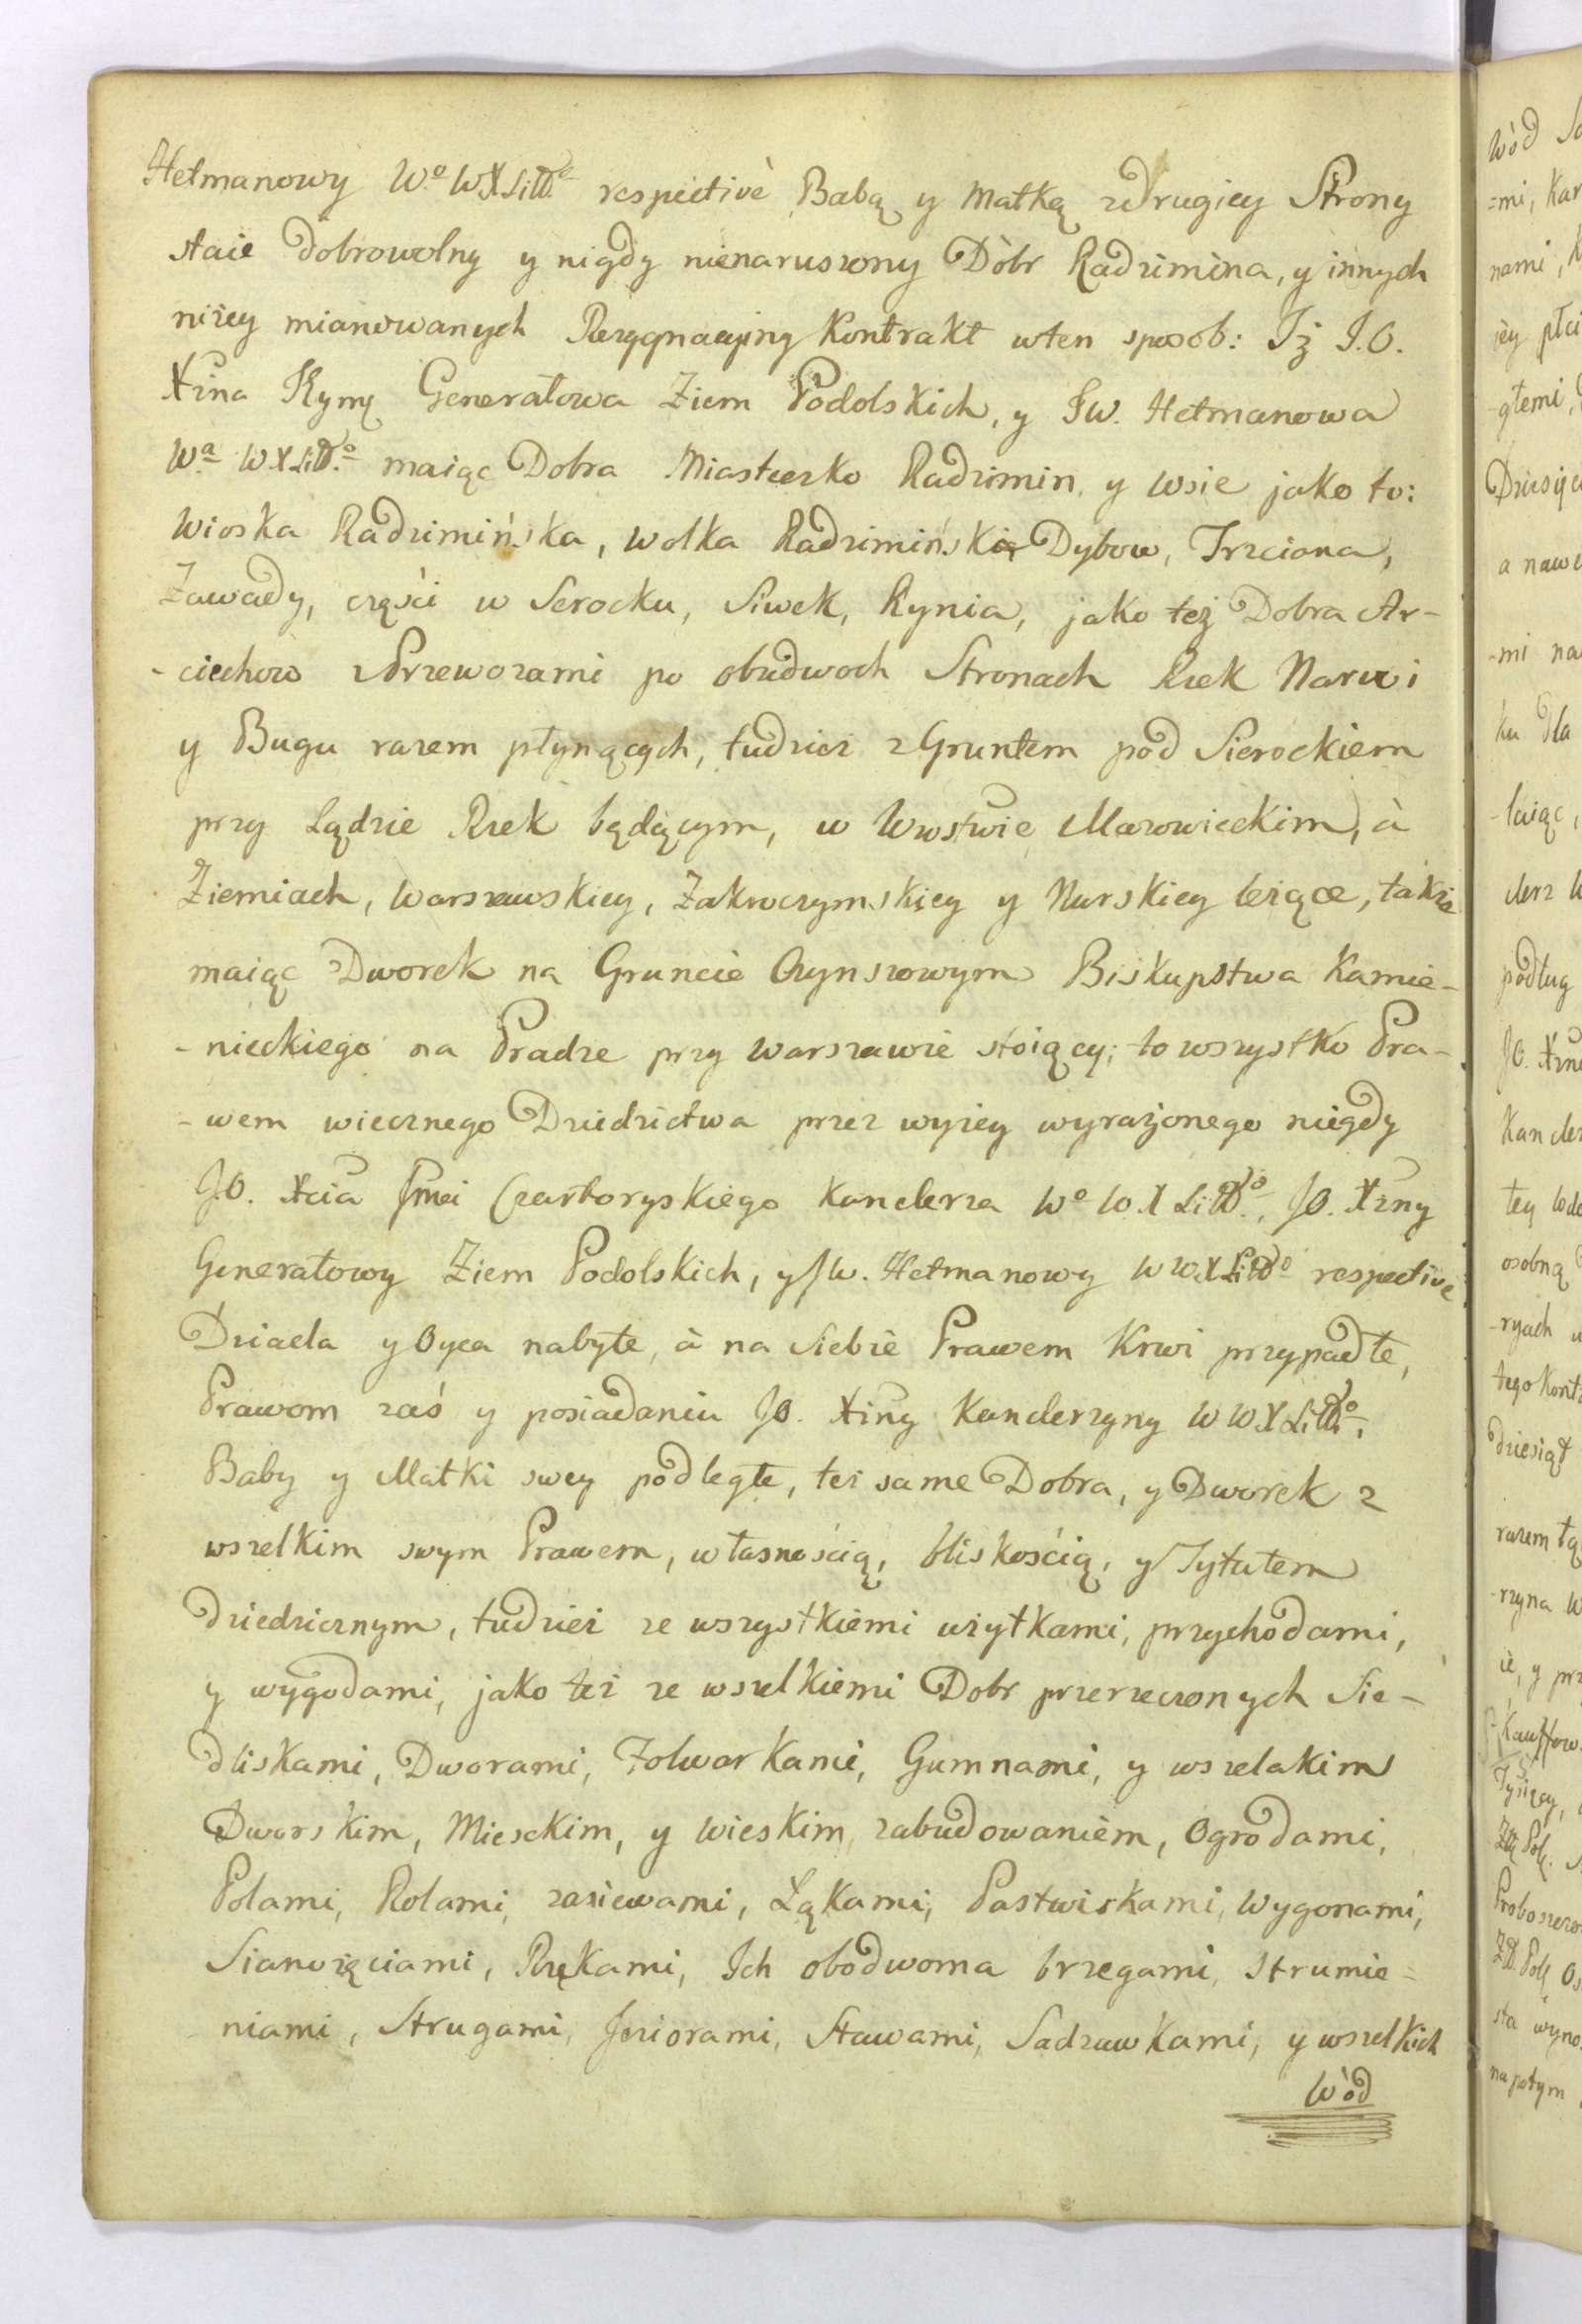 Hetmanowy W.º W X Littº respectivè Babą y Matką z Drugiey Strony
staie dobrowolny y nigdy nienaruszony Dòbr Radzimina, y innych
niżey mianowanych Rezygnacyiny Kontrakt w ten sposob: Iż J.O.
Xżna Rymę Generałowa Ziem Podolskich, y JW. Hetmanowa
W.ª W X Littº maiąc Dobra Miasteczko Radzimin, y wsie jako to:
Wioska Radzimińska, Wolka Radzimińska Dybow, Trzciana,
Zawady, częśći w Serocku, Siwek, Rynia, jako też Dobra Ar-
-ciechow z Przewozami po obudwoch Stronach Rzek Narwi
y Bugu razem płynących, tudziez z Gruntem pod Sierockiem
przy Lądzie Rzek będącym, w Wwstwie Mazowieckim, à
Ziemiach, Warszawskiey, Zakroczymskiey y Nurskiey leżące, także
maiąc Dworek na Gruncie Czynszowym Biskupstwa Kamie-
-nieckiego na Pradze przy Warszawie stoiący; to wszystko Pra-
-wem wiecznego Dziedzictwa przez wyżey wyrażonego niegdy
JO. Xcia Jmci Czartoryskiego Kanclerza Wº W. X Littº, JO. Xżny
Generałowy Ziem Podolskich, y JW. Hetmanowy W W. X Littº respectivè
Dziada y Oyca nabyte, à na Siebie Prawem Krwi przypadłe,
Prawom zaś y posiadaniu JO. Xżny Kanclerzyny W W. X Littº,
Baby y Matki swey podległe, też same Dobra, y Dworek z
wszelkim swym Prawem, własnością, bliskością, y Tytułem
dziedzicznym, tudzież ze wszystkiemi użytkami, przychodami,
y wygodami, jako też ze wszelkiemi Dobr przerzeczonych Sie-
dliskami, Dworami, Folwarkami, Gumnami, y wszelakim
Dworskim, Mieyskim, y wieskim zabudowaniem, Ogrodami,
Polami, Rolami, zasiewami, Łąkami, Pastwiskami, Wygonami,
Sianożęciami, Rzekami, Ich obodwoma brzegami, strumie-
niami, Strugami, Jeziorami, Stawami, Sadzawkami, y wszelkich
Wòd